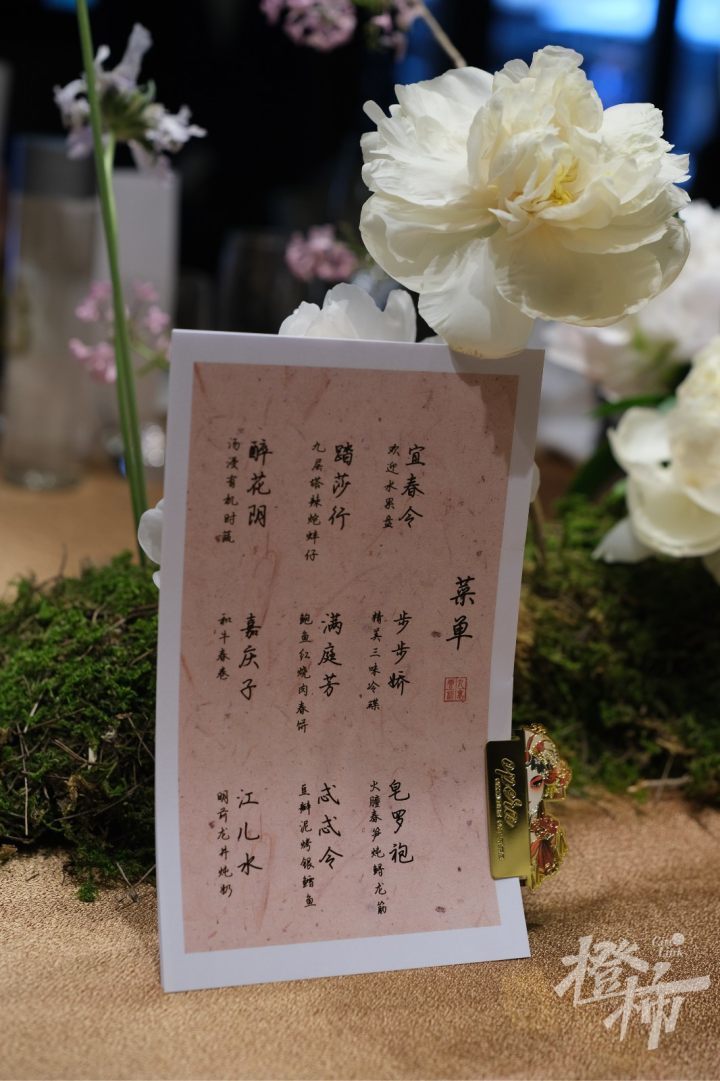 菜单
宜春令
欢迎水果盘
步步娇
精美三味冷碟
皂罗袍
火腿春笋炖鲟龙筋
踏莎行
九层塔辣炮蚌仔
满庭芳
鲍鱼红烧肉春饼
忒忒令
豆瓣泥烤银鳕鱼
醉花阴
汤浸有机时蔬
嘉庆子
和牛春卷
江儿水
明前龙井炖奶
opera
橙柿